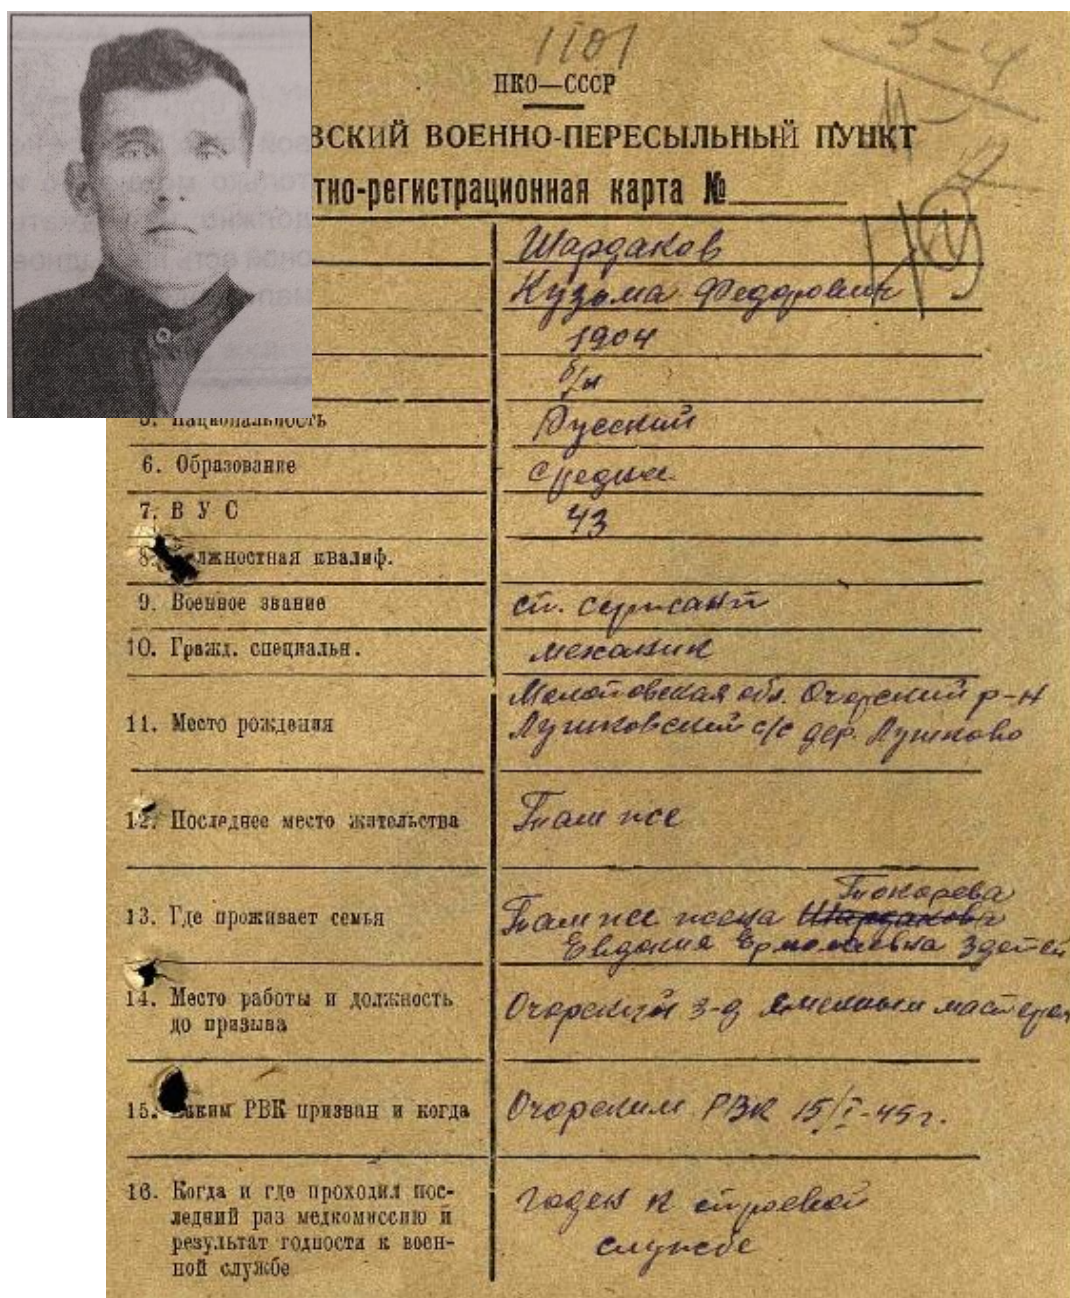 1101
3-4
НКО—СССР
ВСКИЙ ВОЕННО-ПЕРЕСЫЛЬНЫЙ ПУНКТ
тно-регистрационная карта №
Шардаков
Кузьма Федорович
1904
б/п
5. Национальность Русский
6. Образование средне
7. В У С 43
8. олжностная квалиф.
9. Военное звание ст. сержант
10. Гражд. специальн. механик
11. Место рождения Молотовская обл. Очорский р-н
Лужковский с/с дер. Лужково
12. Последнее место жительства Там же
Токарева
13. Где проживает семья Там же жена Шардакова
Евдокия Ермолаевна 3 детей
14. Место работы и должность
до призыва Очорский з-д сменным мастером
15. Каким РВК призван и когда Очорским РВК 15/I-45 г.
16. Когда и где проходил пос-
ледний раз медкомиссию и
результат годности к воен-
ной службе
годен к строевой
службе